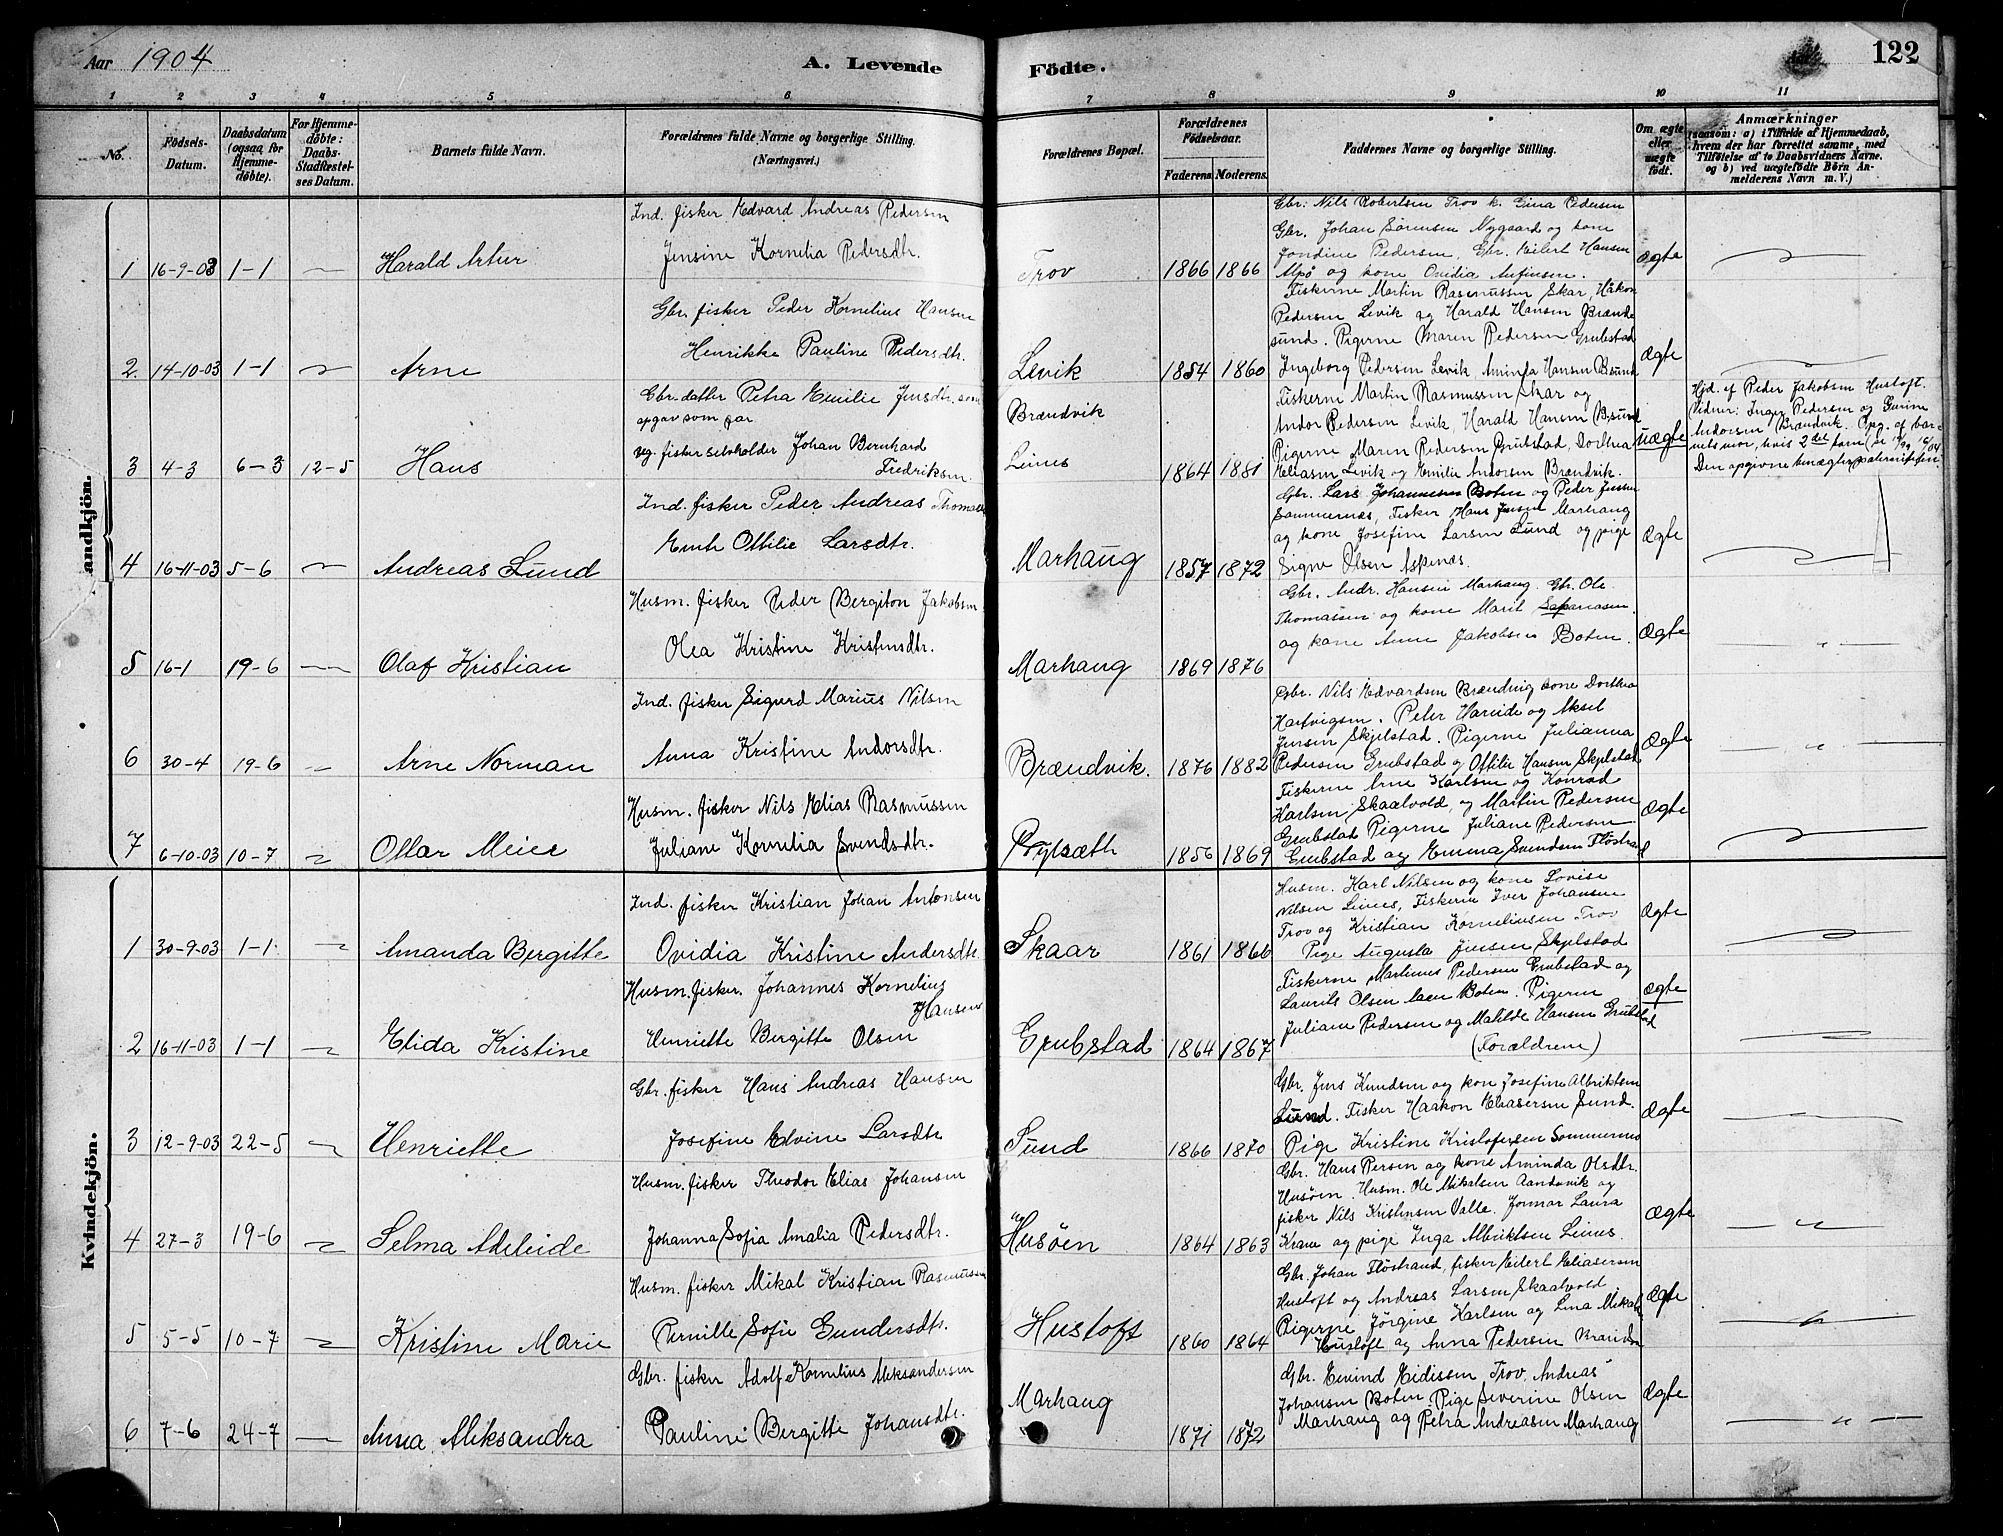 Aar 1904
A. Levende Födte.
122
1 2 3 4 5 6 7 8 9 10 11
No.
Födsels-Datum.
Daabsdatum (ogsaa for Hjemme-döbte).
For Hjemme-döbte: Daabs-Stadfæstel-ses Datum.
Barnets fulde Navn.
Forældrenes fulde Navne og borgerlige Stilling.
(Næringsvei.)
Forældrenes Bopæl.
Forældrenes Födselsaar.
Faderens. Moderens.
Faddernes Navne og borgerlige Stilling.
Om ægte eller uægte födt.
Anmærkninger
(saasom: a) i Tilfælde af Hjemmedaab,
hvem der har forrettet samme, med
Tilföielse af to Daabsvidners Navne.
og b) ved uægtefödte Börn An-
melderens Navn m. V.)
andkjön.
Ind. fisker Edvard Andreas Pedersen
Jensine Kornelia Pedersdtr.
1 16-9-03 1-1 Harald Artur
Trov 1866 1866
Gbr. Nils Robertsen Trov k. Gina Pedersen
Gbr. Johan Sørensen Nygaard og kone
Jondine Pedersen, Gbr. Eilert Hansen
Alpø og kone Ovidia Anfinsen.
Ægte
Gbr. fisker Peder Kornelius Hansen
Henrikke Pauline Pedersdtr.
2. 14-10-03 1-1 Arne
Levik 1854 1860
Fiskerne Martin Rasmussen Skar, Håkon
Pedersen Levik og Harald Hansen Brænde
sund. Pigerne Maren Pedersen Grubstad
Ingeborg Pedersen Levik Aminda Hansen B.sund
Ægte
Gbr. datter Petra Emilie Jensdtr. som
opgav som far
ug. fisker selvholder Johan Bernhard
Fredriksen.
3 4-3 6-3 12-5 Hans
Brændvik
Leines 1864 1881
Fiskerne Martin Rasmussen Skar og
Andor Pedersen Levik Harald Hansen B.sund
Pigerne Maren Pedersen Grubstad, Dorthea
Eliasen Levik og Emilie Andorsen Brændvik.
uægte
Hjd. af Peder Jakobsen Hustoft.
Vidner: Inger Pedersen og Gurine
Andorsen Brændvik. Opg. af bar-
nets mor, hvis 2det barn
Den opgivne benægter paterniteten.
Ind. fisker Peder Andreas Thomas
Emh Ottilie Larsdtr.
4 16-11-03 5-6 Andreas Lund
Marhaug 1857 1872
Gbr. Lars Johannesen Boten og Peder Jensen
Sommernæs, Fisker Hans Jensen Marhaug
og kone Josefine Larsen Lund og pige
Signe Olsen Askenæs.
Ægte
Husm. fisker Peder Bergiton Jakobsen
Olea Kristine Kristensdtr.
5 16-1 19-6 Olaf Kristian
Marhaug 1869 1876
Gbr. Andr. Hansen Marhaug. Gbr. Ole
Thomassen og kone Marit Safaniasen
og kone Anne Jakobsen Boten.
Ægte
Ind. fisker Sigurd Marius Nilsen
Anna Kristine Andorsdtr.
6 30-4 19-6 Arne Norman
Brændvik. 1876 1882
Gbr. Nils Edvardsen Brændvig kone Dorthea
Hartvigsen. Peter Hareide og Aksel
Jensen Skjelstad. Pigerne Julianna
Pedersen Grubstad og Ottilie Hansen Skjelstad
Ægte
Husm. fisker Nils Elias Rasmussen
Juliane Kornelia Svendsdtr.
7 6-10-03 10-7 Ottar Meier
1856 1869
Fiskerne Arne Karlsen og Konrad
Karlsen Skaalvold, og Martin Pedersen
Grubstad Pigerne Juliane Pedersen
Grubstad og Emma Svendsen Flöstrand
Ægte
Kvindekjön.
Ind. fisker Kristian Johan Antonsen
Ovidia Kristine Andersdtr.
1 30-9-03 1-1 Amanda Bergitte
Skaar 1861 1866
Husm. Karl Nilsen og kone Lovise
Nilsen Leines, Fiskerne Iver Johansen
Trov og Kristian Korneliusen Trov
Pige Augusta Jensen Skjelstad
Ægte
Husm. fisker. Johannes Kornelius
Hansen
Henriette Bergitte Olsen
2 16-11-03 1-1 Elida Kristine
Grubstad 1864 1867
Fiskerne Martinus Pedersen Grubstad og
Laurits Olsen Boten. Pigerne
Juliane Pedersen og Matilde Hansen Grubstad
(Forældrene)
Ægte
Gbr. fisker Hans Andreas Hansen
Josefine Edvine Larsdtr
3 12-9-03 22-5 Henriette
Sund 1866 1870
Gbr. Jens Knudsen og kone Josefine Albriktsen
Lund. Fisker Haakon Eliasersen Sund.
Pige Kristine Kristofersen Sommernes
Ægte
Husm. fisker Theodor Elias Johansen
Johanna Sofia Amalia Pedersdtr.
4 27-3 19-6 Selma Adeleide
Husöen 1864 1863
Gbr. Hans Persen og kone Aminda Olsdtr.
Husöen. Husm. Ole Mikalsen Aandervik og
fisker Nils Kristensen Valle. Jormor Laura
Krane og pige Inga Albriktsen Leines.
Ægte
Husm. fisker Mikal Kristian Rasmussen
Pernille Sofie Gundersdtr.
5 5-5 10-7 Kristine Marie
Hustoft 1860 1864
Gbr. Johan Flöstrand, fisker Eilert Eliasersen
Hustoft og Andreas Larsen Skaalvold
Pigerne Jörgine Karlsen og Lina Mikals
Hustoft og Anna Pedersen
Ægte
Gbr. fisker Adolf Kornelius Aleksandersen
Pauline Bergitte Johansdtr.
6 7-6 24-7 Anna Aleksandra
Marhaug 1871 1872
Gbr. Eivind Eidissen Trov, Andreas
Johansen Boten. Pige Severine Olsen
Marhaug og Petra Andreasen Marhaug
Ægte